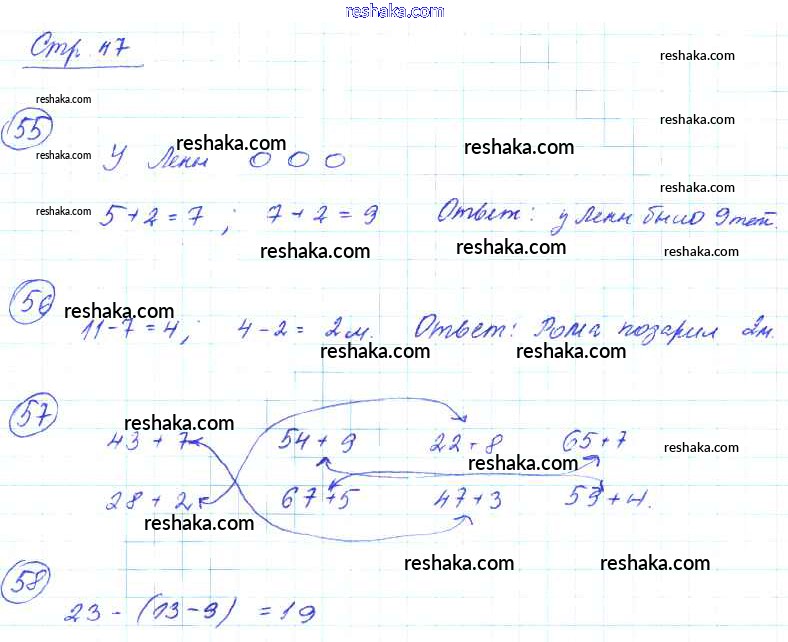 reshaka.com
Стр 47
reshaka.com
reshaka.com
55
reshaka.com
reshaka.com
reshaka.com
reshaka.com
У Лены О О О
reshaka.com
reshaka.com
5 + 2 = 7 ; 7 + 2 = 9 Ответ: у Лены было 9 тет.
reshaka.com
reshaka.com
reshaka.com
56
reshaka.com
11 - 7 = 4 ; 4 - 2 = 2 м. Ответ: Рома подарил 2 м.
reshaka.com
reshaka.com
57
reshaka.com
43 + 7 54 + 9 22 + 8 65 + 7
reshaka.com
reshaka.com
28 + 2 67 + 5 47 + 3 59 + 4.
reshaka.com
reshaka.com
reshaka.com
58
23 - (13 - 9) = 19